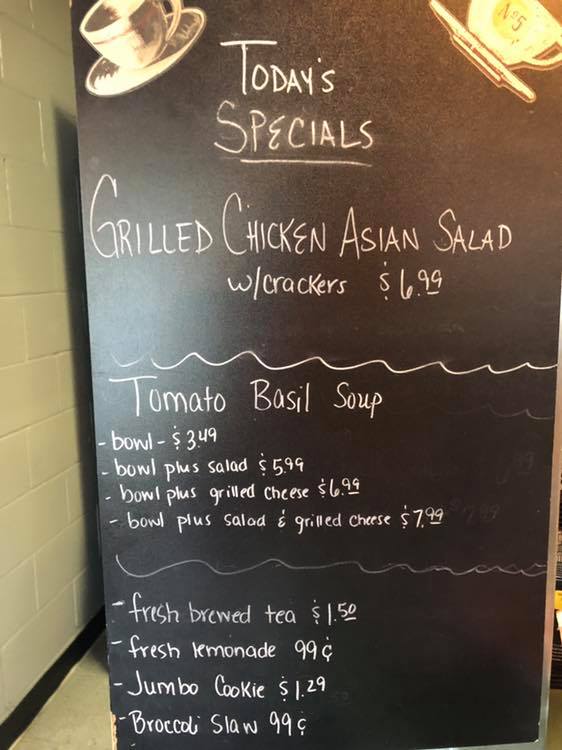 Nº5
TODAY'S
SPECIALS
GRILLED CHICKEN ASIAN SALAD
w/crackers $6.99
Tomato Basil Soup
- bowl - $3.49
- bowl plus salad $5.99
- bowl plus grilled cheese $6.99
- bowl plus salad & grilled cheese $7.99
- fresh brewed tea $1.50
- fresh lemonade 99¢
- Jumbo Cookie $1.29
- Broccoli Slaw 99¢